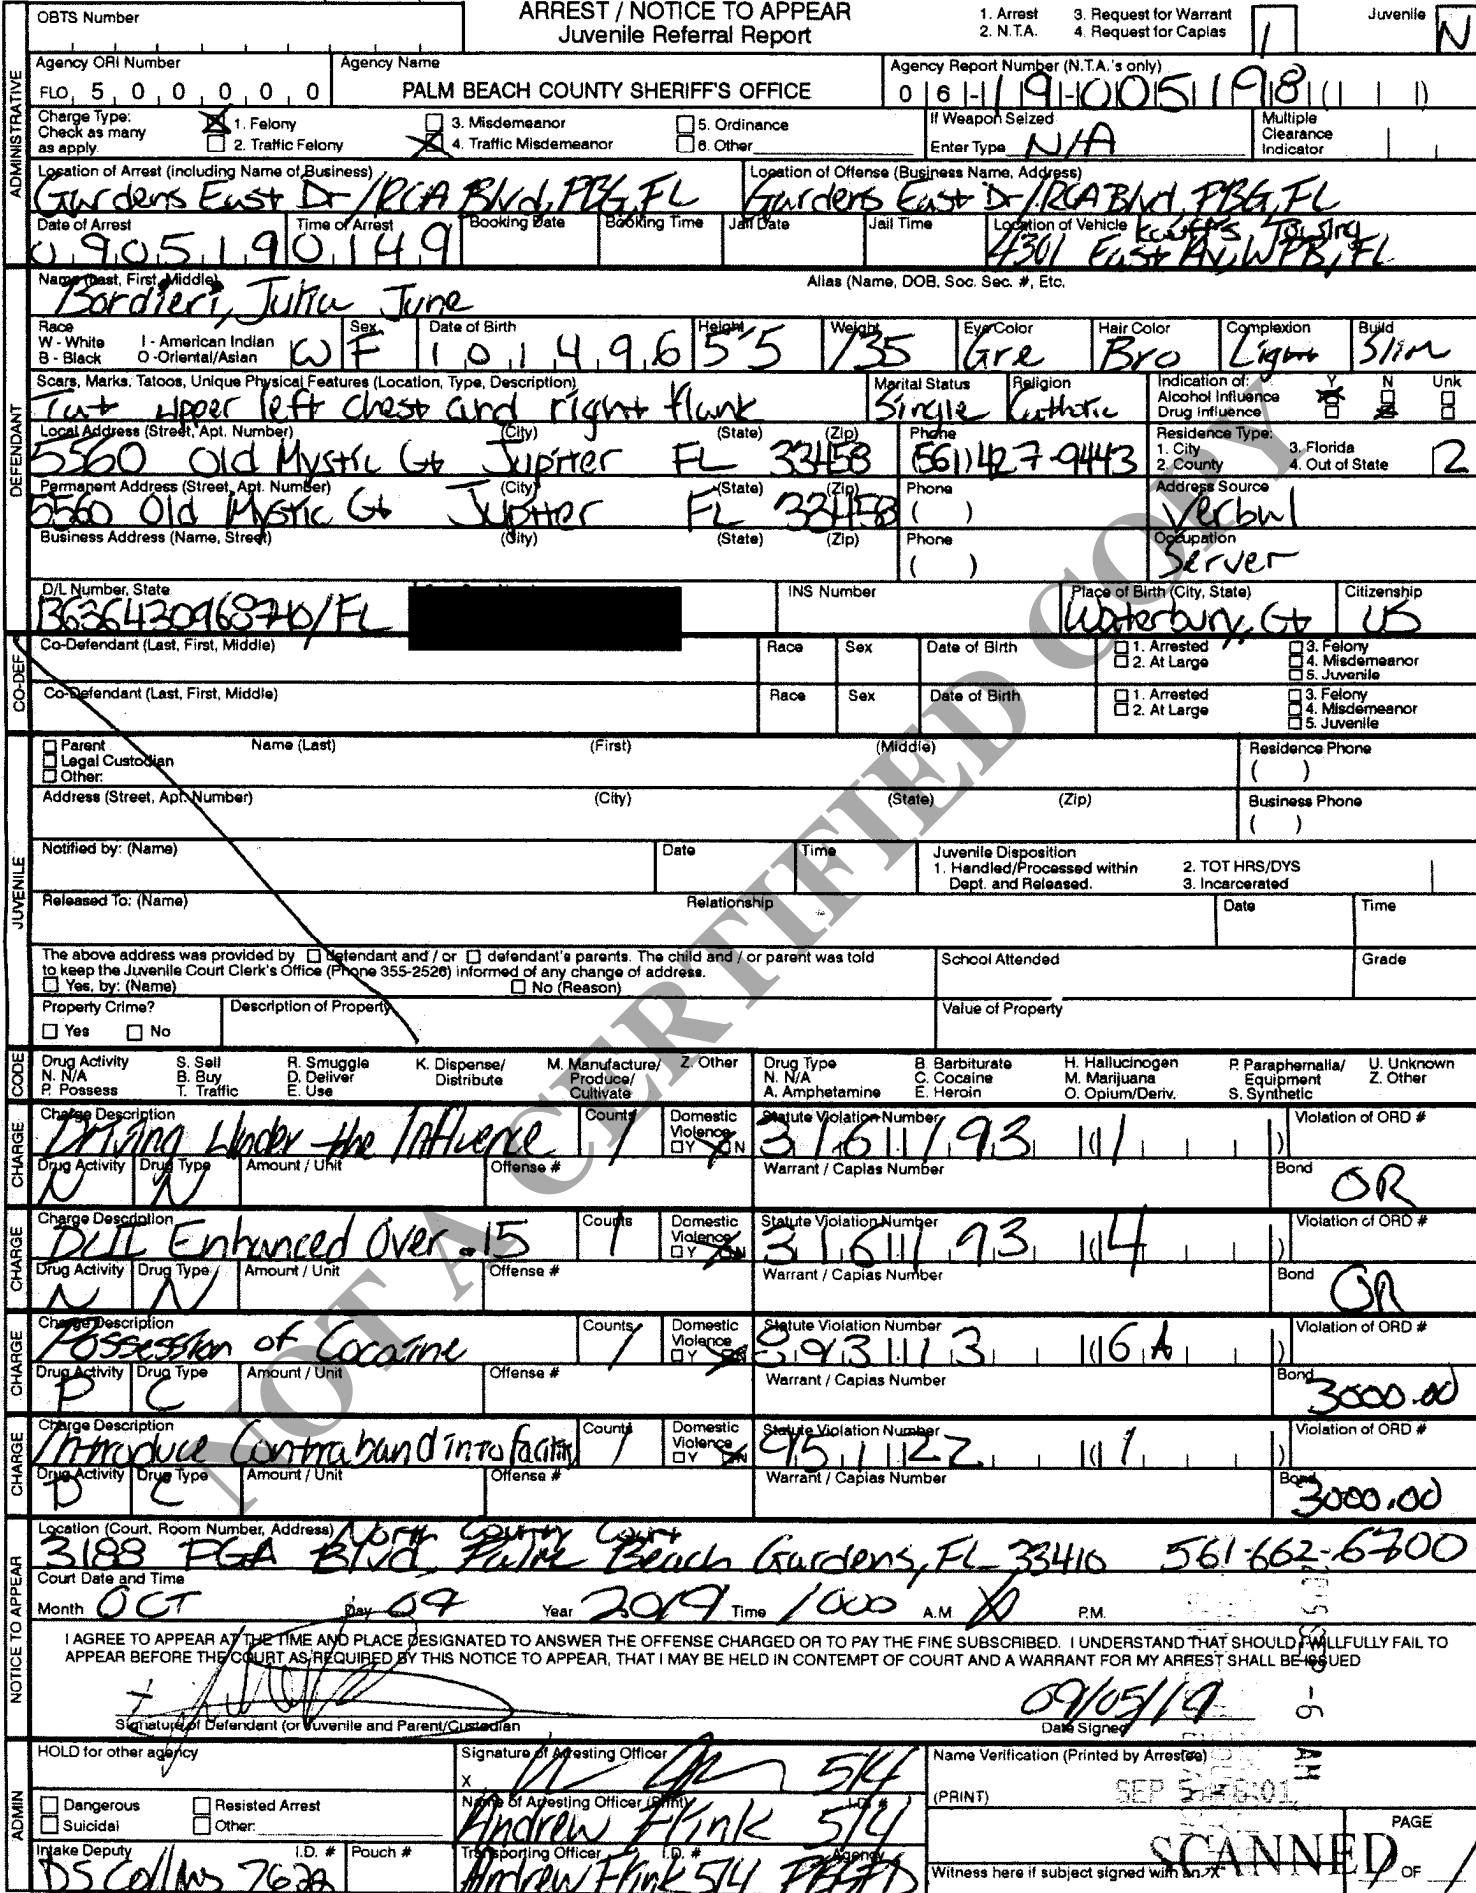 OBTS Number
ARREST / NOTICE TO APPEAR
Juvenile Referral Report
1. Arrest 3. Request for Warrant
2. N.T.A. 4. Request for Capias
1
Juvenile N
ADMINISTRATIVE
Agency ORI Number
FLO 5 0 0 0 0 0
Agency Name
PALM BEACH COUNTY SHERIFF'S OFFICE
Agency Report Number (N.T.A.'s only)
0 6 - 19-005198
Charge Type:
Check as many
as apply.
1. Felony 3. Misdemeanor 5. Ordinance
2. Traffic Felony 4. Traffic Misdemeanor 6. Other
If Weapon Seized
Enter Type N/A
Multiple
Clearance
Indicator
Location of Arrest (including Name of Business)
Gardens East Dr/RCA Blvd, PBG, FL
Location of Offense (Business Name, Address)
Gardens East Dr/RCA Blvd, PBG, FL
Date of Arrest
090519
Time of Arrest
0149
Booking Date Booking Time Jail Date Jail Time
Location of Vehicle Kauff's Towing
4301 East Av, WPB, FL
DEFENDANT
Name (Last, First, Middle)
Bordieri, Julia June
Alias (Name, DOB, Soc. Sec. #, Etc.
Race
W - White I - American Indian
B - Black O -Oriental/Asian
W
Sex F
Date of Birth
101496
Height 5'5
Weight 135
Eye Color Gre
Hair Color Bro
Complexion Light
Build Slim
Scars, Marks, Tatoos, Unique Physical Features (Location, Type, Description)
Tat upper left chest and right flank
Marital Status Single
Religion Catholic
Indication of: Y N Unk
Alcohol Influence
Drug Influence
Local Address (Street, Apt. Number) (City) (State) (Zip) Phone
5560 Old Mystic Ct Jupiter FL 33458 (561) 427-9443
Residence Type:
1. City 3. Florida
2. County 4. Out of State
2
Permanent Address (Street, Apt. Number) (City) (State) (Zip) Phone
5560 Old Mystic Ct Jupiter FL 33458 ( )
Address Source
Verbal
Business Address (Name, Street) (City) (State) (Zip) Phone
( )
Occupation
Server
D/L Number, State
B636430968740/FL
INS Number
Place of Birth (City, State)
Waterbury, Ct
Citizenship
US
CO-DEF
Co-Defendant (Last, First, Middle) Race Sex Date of Birth
1. Arrested 3. Felony
2. At Large 4. Misdemeanor
5. Juvenile
Co-Defendant (Last, First, Middle) Race Sex Date of Birth
1. Arrested 3. Felony
2. At Large 4. Misdemeanor
5. Juvenile
JUVENILE
Parent Name (Last) (First) (Middle)
Legal Custodian
Other:
Residence Phone
( )
Address (Street, Apt. Number) (City) (State) (Zip)
Business Phone
( )
Notified by: (Name) Date Time
Juvenile Disposition
1. Handled/Processed within 2. TOT HRS/DYS
Dept. and Released. 3. Incarcerated
Released To: (Name) Relationship Date Time
The above address was provided by defendant and / or defendant's parents. The child and / or parent was told
to keep the Juvenile Court Clerk's Office (Phone 355-2526) informed of any change of address.
Yes, by: (Name) No (Reason)
School Attended Grade
Property Crime?
Yes No
Description of Property
Value of Property
CODE
Drug Activity S. Sell R. Smuggle K. Dispense/ M. Manufacture/ Z. Other
N. N/A B. Buy D. Deliver Distribute Produce/
P. Possess T. Traffic E. Use Cultivate
Drug Type B. Barbiturate H. Hallucinogen P. Paraphernalia/ U. Unknown
N. N/A C. Cocaine M. Marijuana Equipment Z. Other
A. Amphetamine E. Heroin O. Opium/Deriv. S. Synthetic
CHARGE
Charge Description
Driving Under the Influence
Counts 1
Domestic
Violence
Y N
Statute Violation Number
316.193 (1)
Violation of ORD #
Drug Activity N Drug Type N Amount / Unit Offense # Warrant / Capias Number
Bond OR
CHARGE
Charge Description
DUI Enhanced Over .15
Counts 1
Domestic
Violence
Y N
Statute Violation Number
316.193 (4)
Violation of ORD #
Drug Activity N Drug Type N Amount / Unit Offense # Warrant / Capias Number
Bond OR
CHARGE
Charge Description
Possession of Cocaine
Counts 1
Domestic
Violence
Y N
Statute Violation Number
893.13 (6A)
Violation of ORD #
Drug Activity P Drug Type C Amount / Unit Offense # Warrant / Capias Number
Bond 3000.00
CHARGE
Charge Description
Introduce Contraband into facility
Counts 1
Domestic
Violence
Y N
Statute Violation Number
951.22 (1)
Violation of ORD #
Drug Activity P Drug Type C Amount / Unit Offense # Warrant / Capias Number
Bond 3000.00
NOTICE TO APPEAR
Location (Court, Room Number, Address) North County Court
3188 PGA Blvd, Palm Beach Gardens, FL 33410 561-662-6700
Court Date and Time
Month OCT Day 09 Year 2019 Time 1000 A.M. P.M.
I AGREE TO APPEAR AT THE TIME AND PLACE DESIGNATED TO ANSWER THE OFFENSE CHARGED OR TO PAY THE FINE SUBSCRIBED. I UNDERSTAND THAT SHOULD I WILLFULLY FAIL TO
APPEAR BEFORE THE COURT AS REQUIRED BY THIS NOTICE TO APPEAR, THAT I MAY BE HELD IN CONTEMPT OF COURT AND A WARRANT FOR MY ARREST SHALL BE ISSUED
Signature of Defendant (or Juvenile and Parent/Custodian
09/05/19
Date Signed
ADMIN
HOLD for other agency
Signature of Arresting Officer
X 514
Name Verification (Printed by Arrestee)
(PRINT)
SEP 5
Dangerous Resisted Arrest
Suicidal Other:
Name of Arresting Officer (Print) I.D. #
Andrew Flink 514
Intake Deputy I.D. # Pouch #
DS Collins 7622
Transporting Officer I.D. # Agency
Andrew Flink 514 PBGPD
Witness here if subject signed with an X
SCANNED
PAGE
1 OF 1
NOT A CERTIFIED COPY